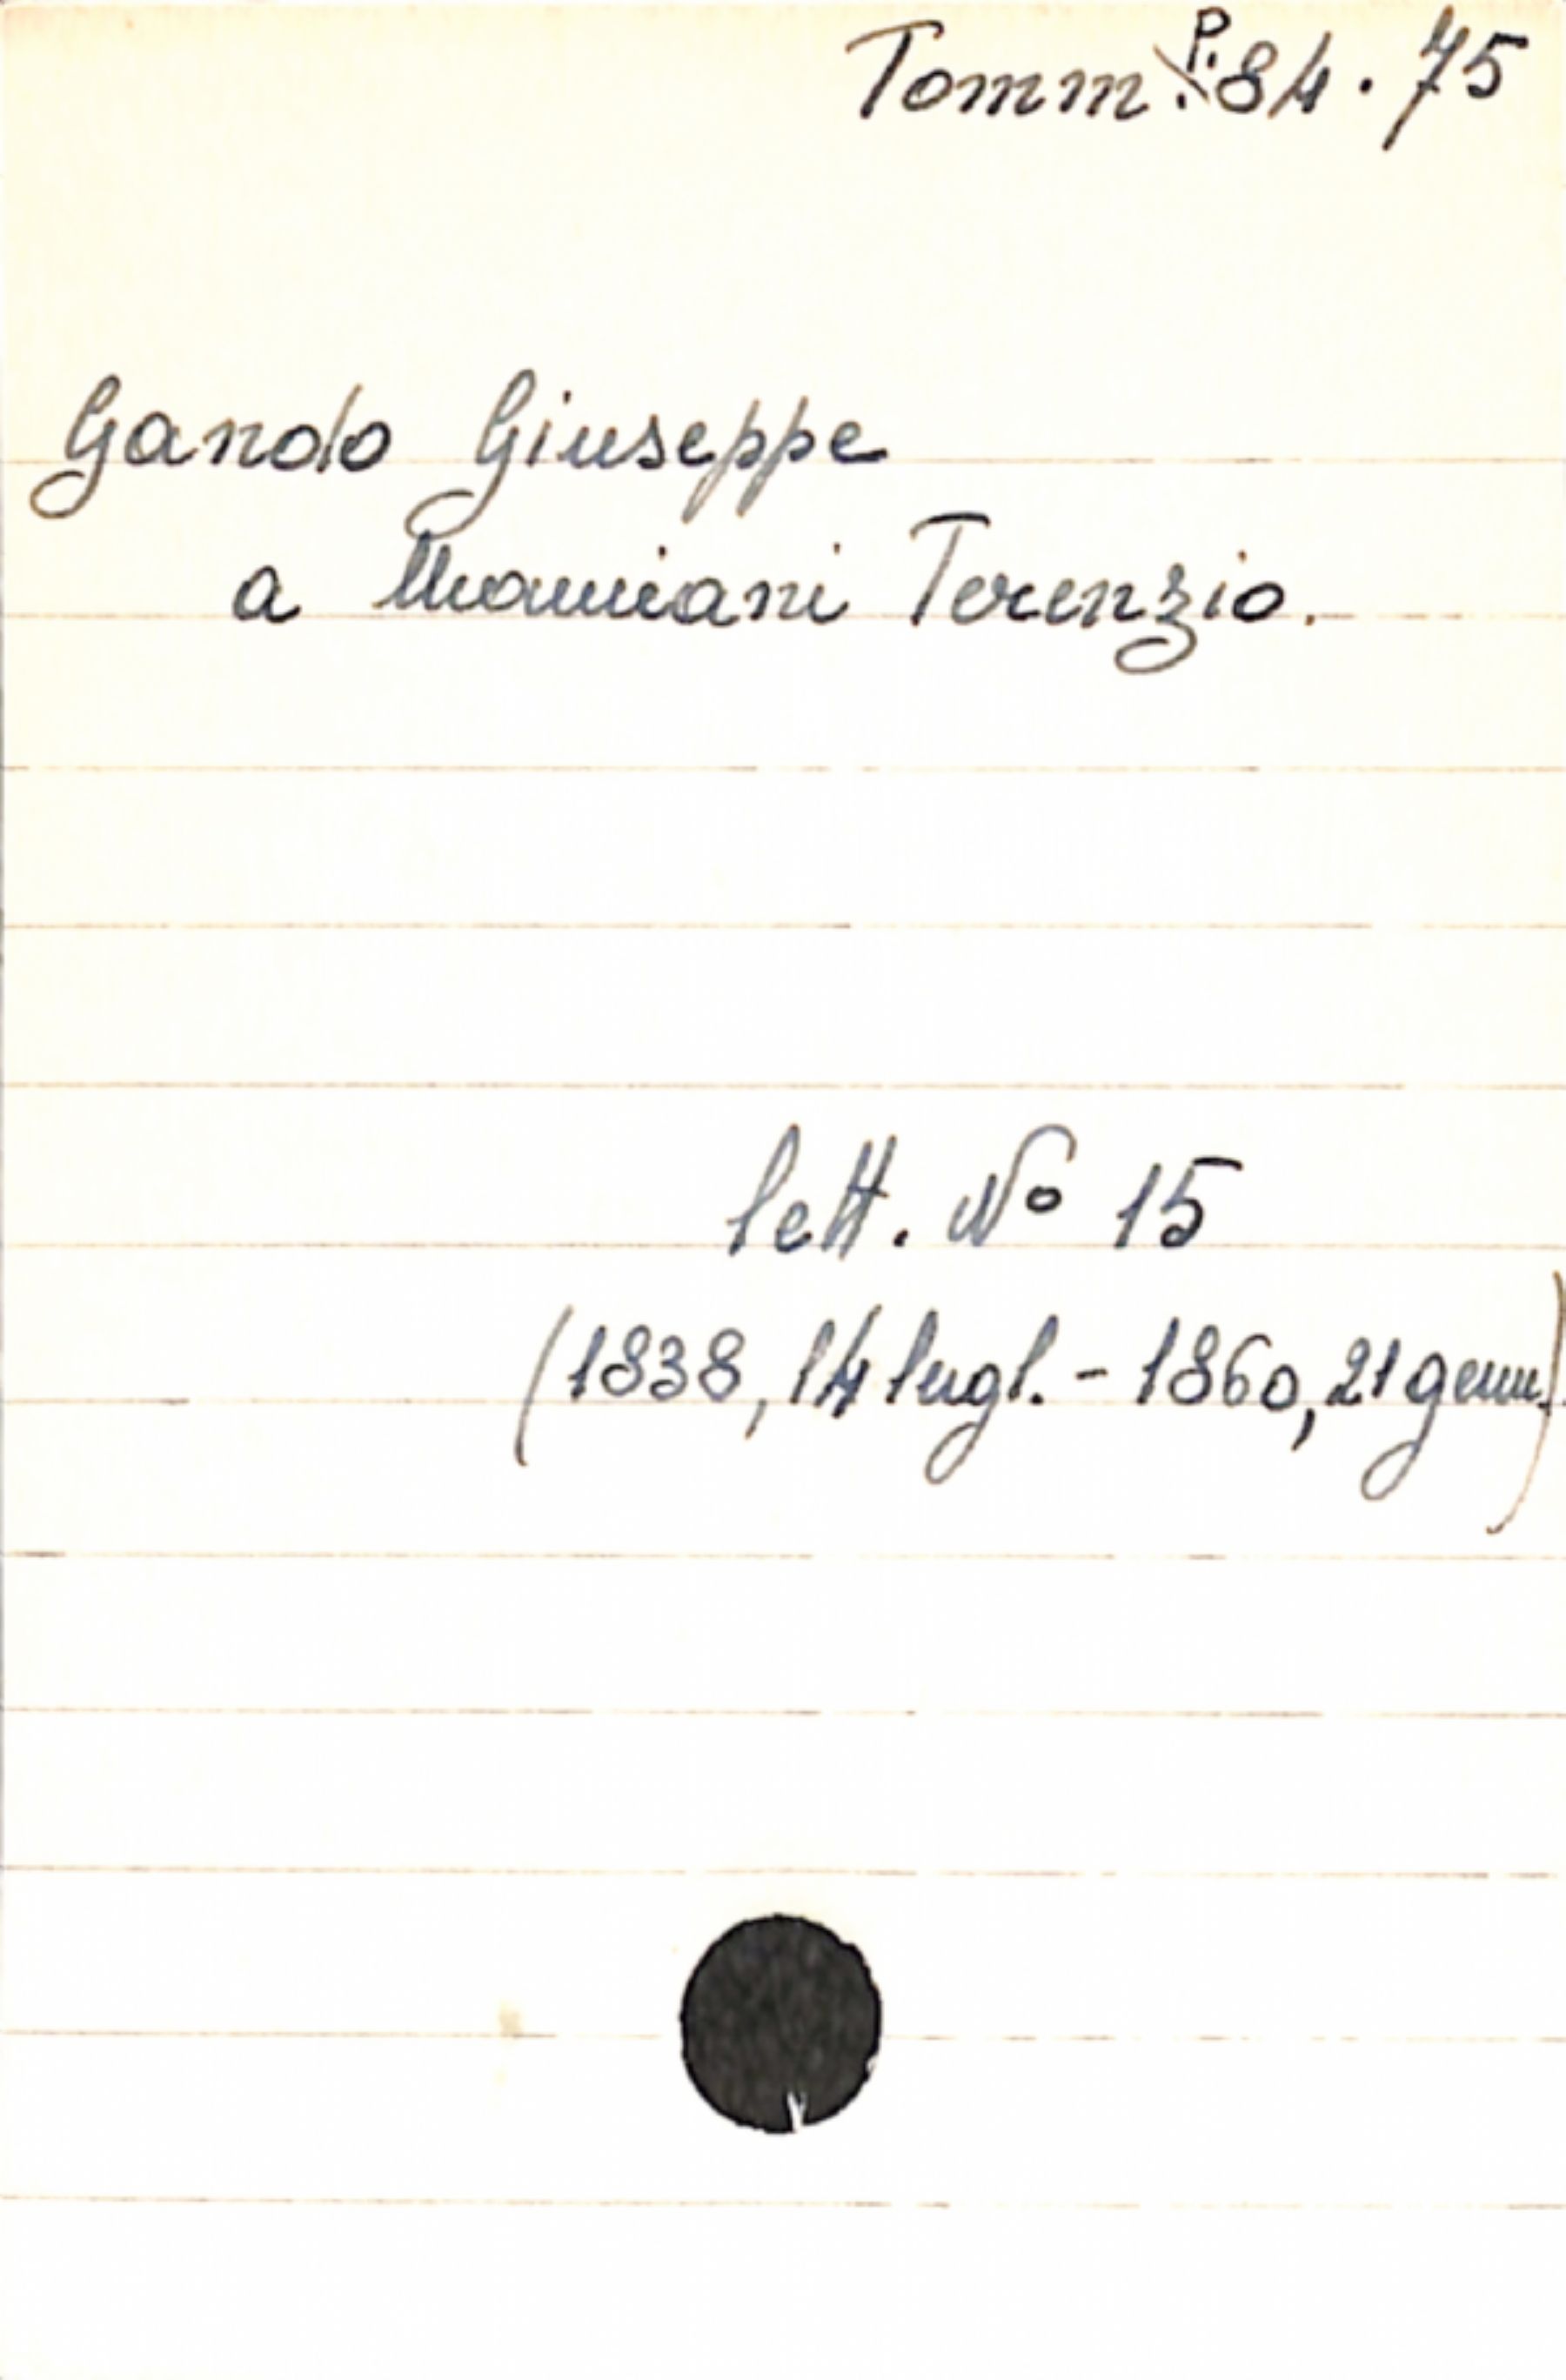 Tomm. P. 84. 75
Gando Giuseppe
a Mamiani Terenzio.
lett. N° 15
(1838, 14 lugl. - 1860, 21 genn.).